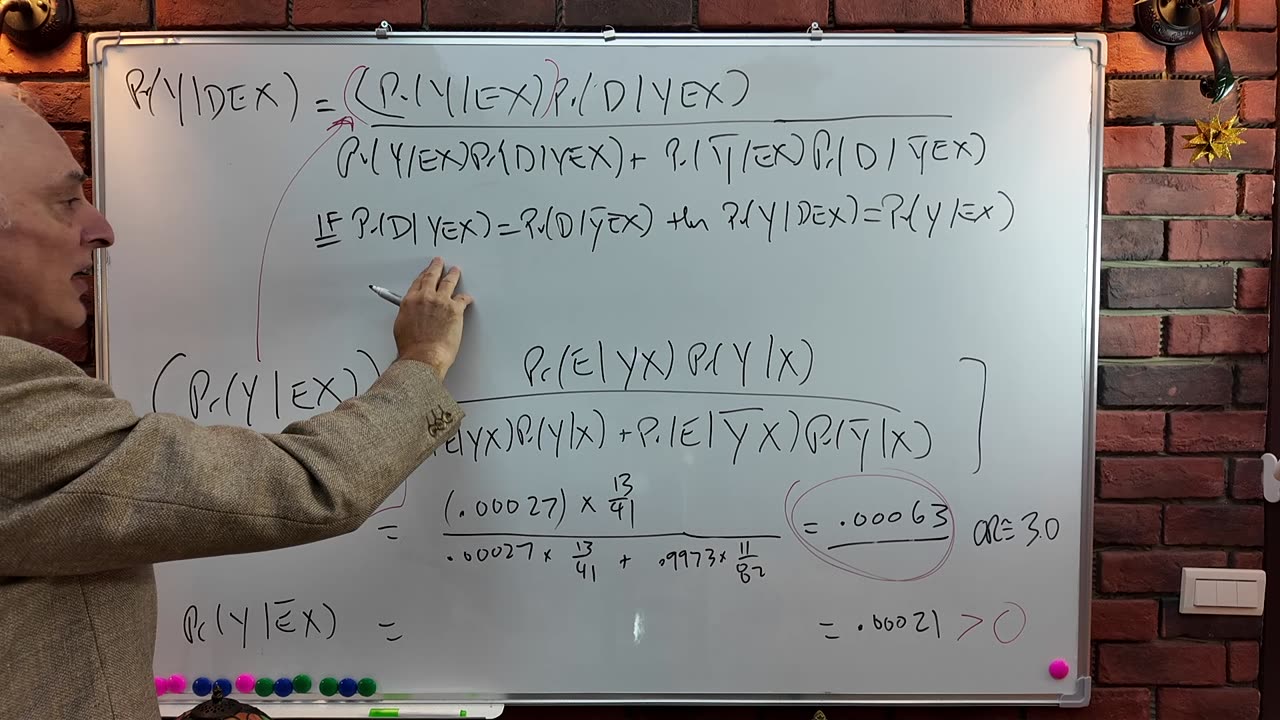 Pr(Y|DEX) = (Pr(Y|EX)Pr(D|YEX)
Pr(Y|EX)Pr(D|YEX) + Pr(Y̅|EX)Pr(D|Y̅EX)
IF Pr(D|YEX) = Pr(D|Y̅EX) then Pr(Y|DEX) = Pr(Y|EX)
(Pr(Y|EX)) Pr(E|YX) Pr(Y|X)
E|YX)Pr(Y|X) + Pr(E|Y̅X)Pr(Y̅|X) ]
= (.00027) × 13/41 = .00063 OR ≅ 3.0
.00027 × 13/41 + .9973 × 11/82
Pr(Y|E̅X) = = .00021 > 0